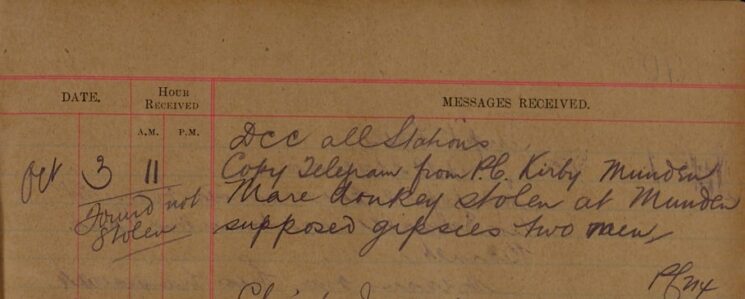 DATE.
HOUR RECEIVED
MESSAGES RECEIVED.
A.M. P.M.
DCC all Stations
Oct 3 11 Copy Telegram from P.C. Kirby Munden
Mare donkey stolen at Munden
supposed gipsies two men,
Found not
Stolen